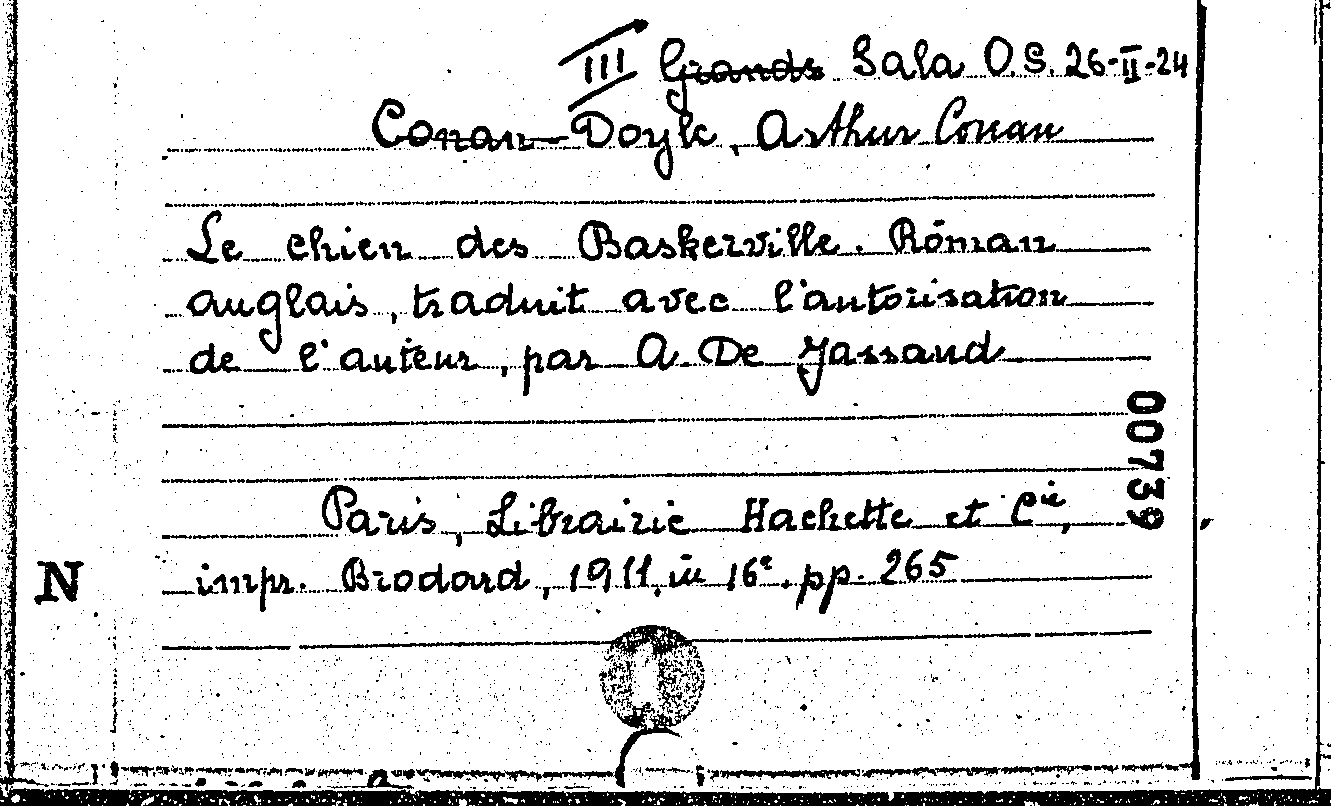 III Grands Sala O.S. 26-II-24
Conan-Doyle, Arthur Conan
Le chien des Baskerville. Róman
anglais, traduit avec l'autorisation
de l'auteur, par A. De Jassaud
00739
Paris, Librairie Hachette et Cie,
N impr. Brodard, 1911, in 16°. pp. 265